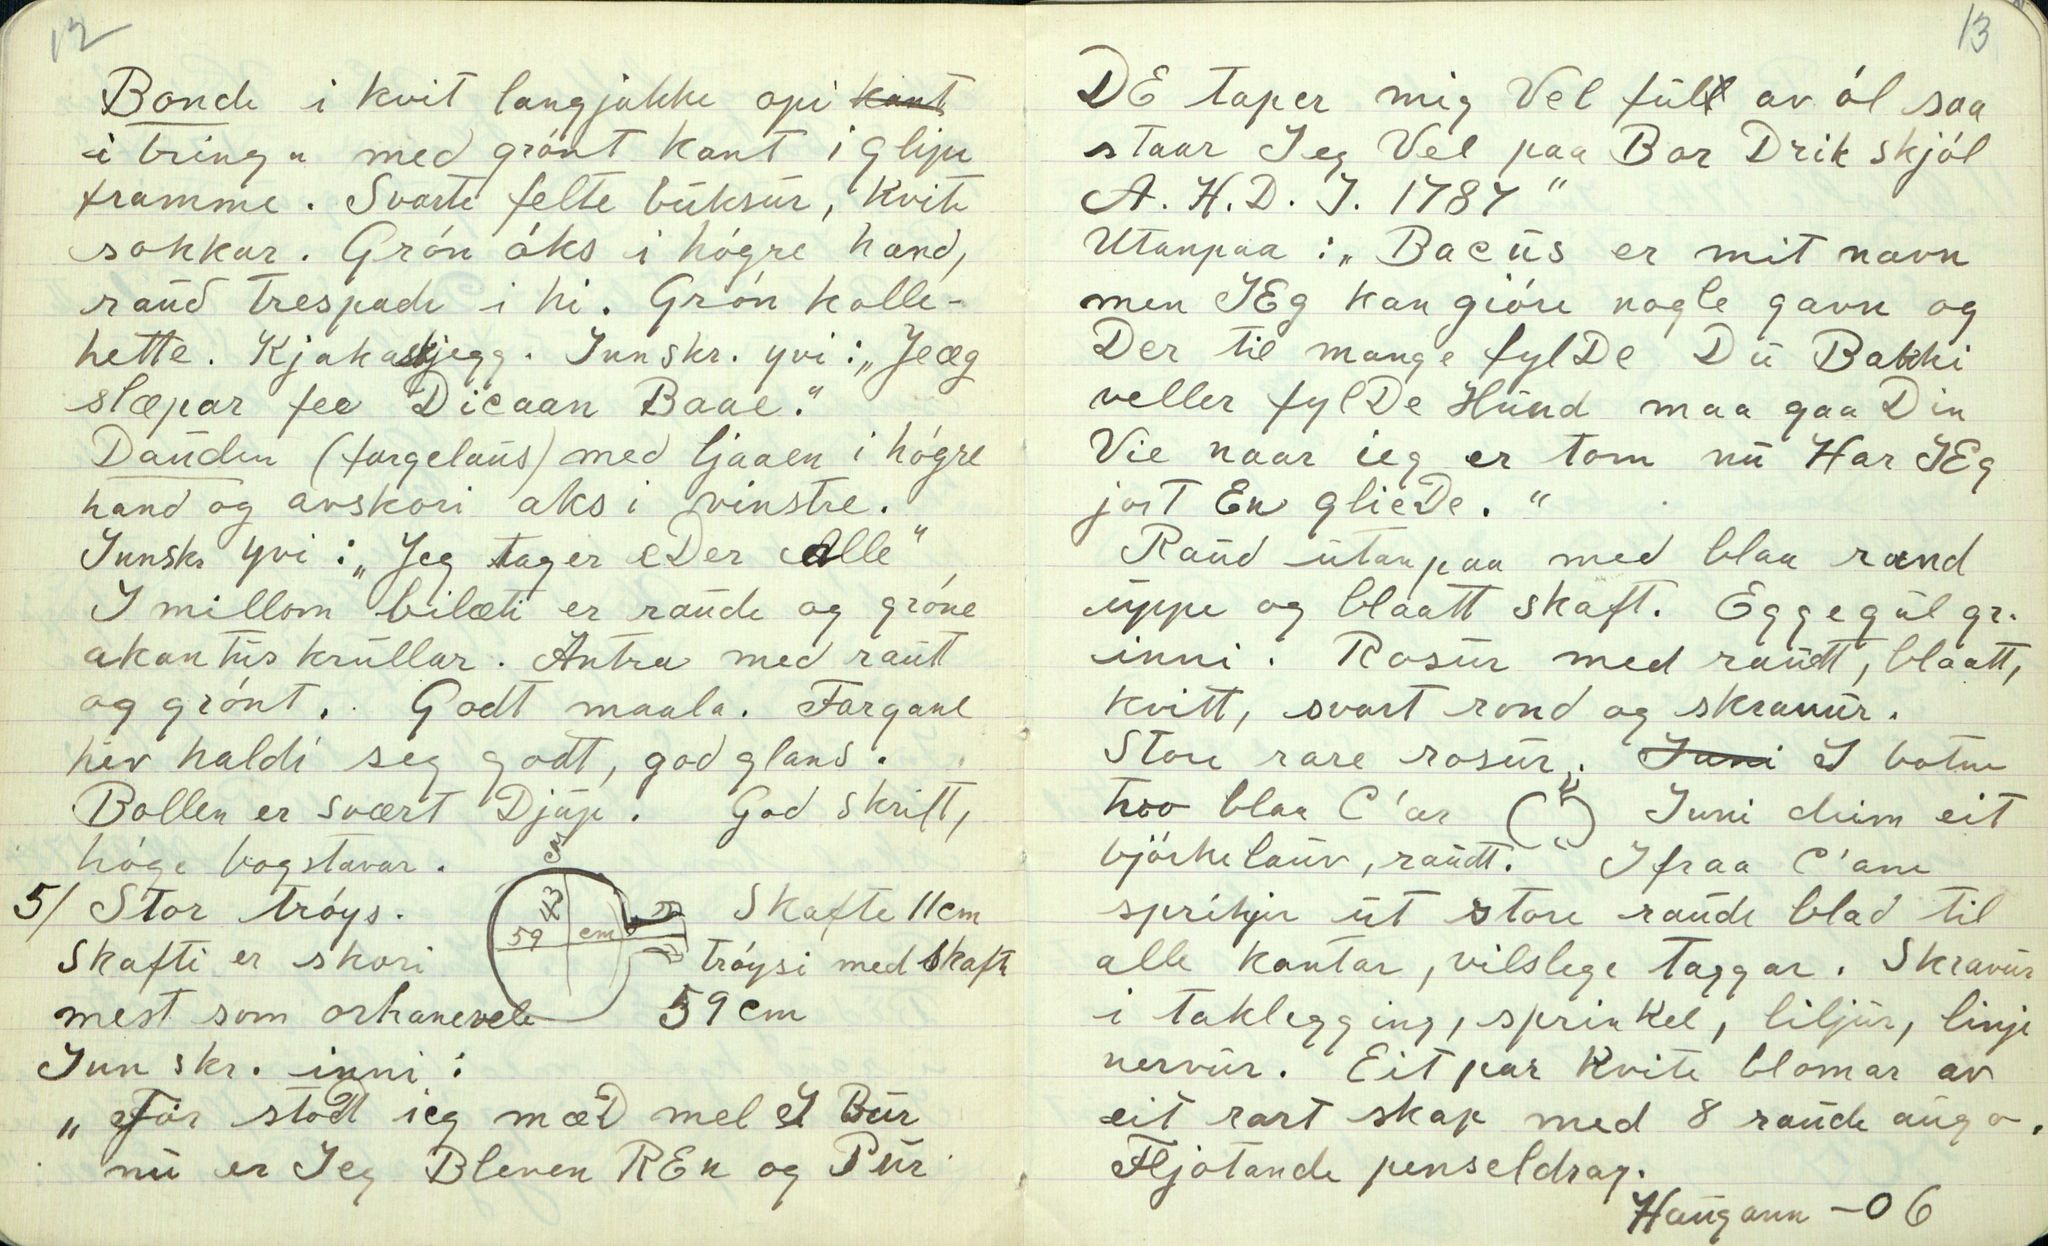 12
Bonde i kvit langjakke opi kant
i bringa med grónt kant i glipu
framme. Svarte felte büksür, kvite
sokkar. Grón óks i hógre hand,
raüd trespade i hi. Grón kolle-
hette. Kjakaskjegg. Innskr. yvi: „Jeæg
slæpar fee Dicaan Baae."
Daüden (fargelaüs) med ljaaen i hógre
hand og avskori aks i vinstre.
Innskr yvi: „Jeg tager eDer Alle"
I millom bilæti er raüde og gróne
akantüskrüllar. Antra med raüt
og grónt. Godt maala. Fargane
hev haldi seg godt, god glans.
Bollen er svært Djüp. God skrift,
hóge bogstavar.
5/ Stor tróys. 43 cm Skafte 11 cm
59 cm
Skafti er skori tróysi med skafte
mest som orhanevele 59 cm
Innskr. inni:
„Før stodt ieg mæD mel I Bür
nü er Jeg Bleven REn og Pür
13
DE taper mig Vel fült av ól saa
staar Jeg Vel paa Bor Drik skjól
A. H. D. I. 1787"
Utanpaa: „Bacüs er mit navn
men IEg kan gióre nogle gavn og
Der til mange fylDe Dü Bakki
veller fylDe Hünd maa gaa Din
Vie naar ieg er tom nü Har IEg
jort En glieDe."
Raüd ütanpaa med blaa rand
üppe og blaatt skaft. Eggegül gr.
inni. Rosür med raüdt, blaatt,
kvitt, svart rond og skravür.
Store rare rosür. Inni I botne
tvo blaa C'ar Inni deim eit
bjórkelaüv, raüdt. Ifraa C'ane
sprikjer üt store raüde blad til
alle kantar, vilslege taggar. Skravür
i taklegging, sprinkel, liljür, linje
nervür. Eit par kvite blomar av
eit rart skap med 8 raüde aügo.
Fljotande penseldrag.
Haügann -06